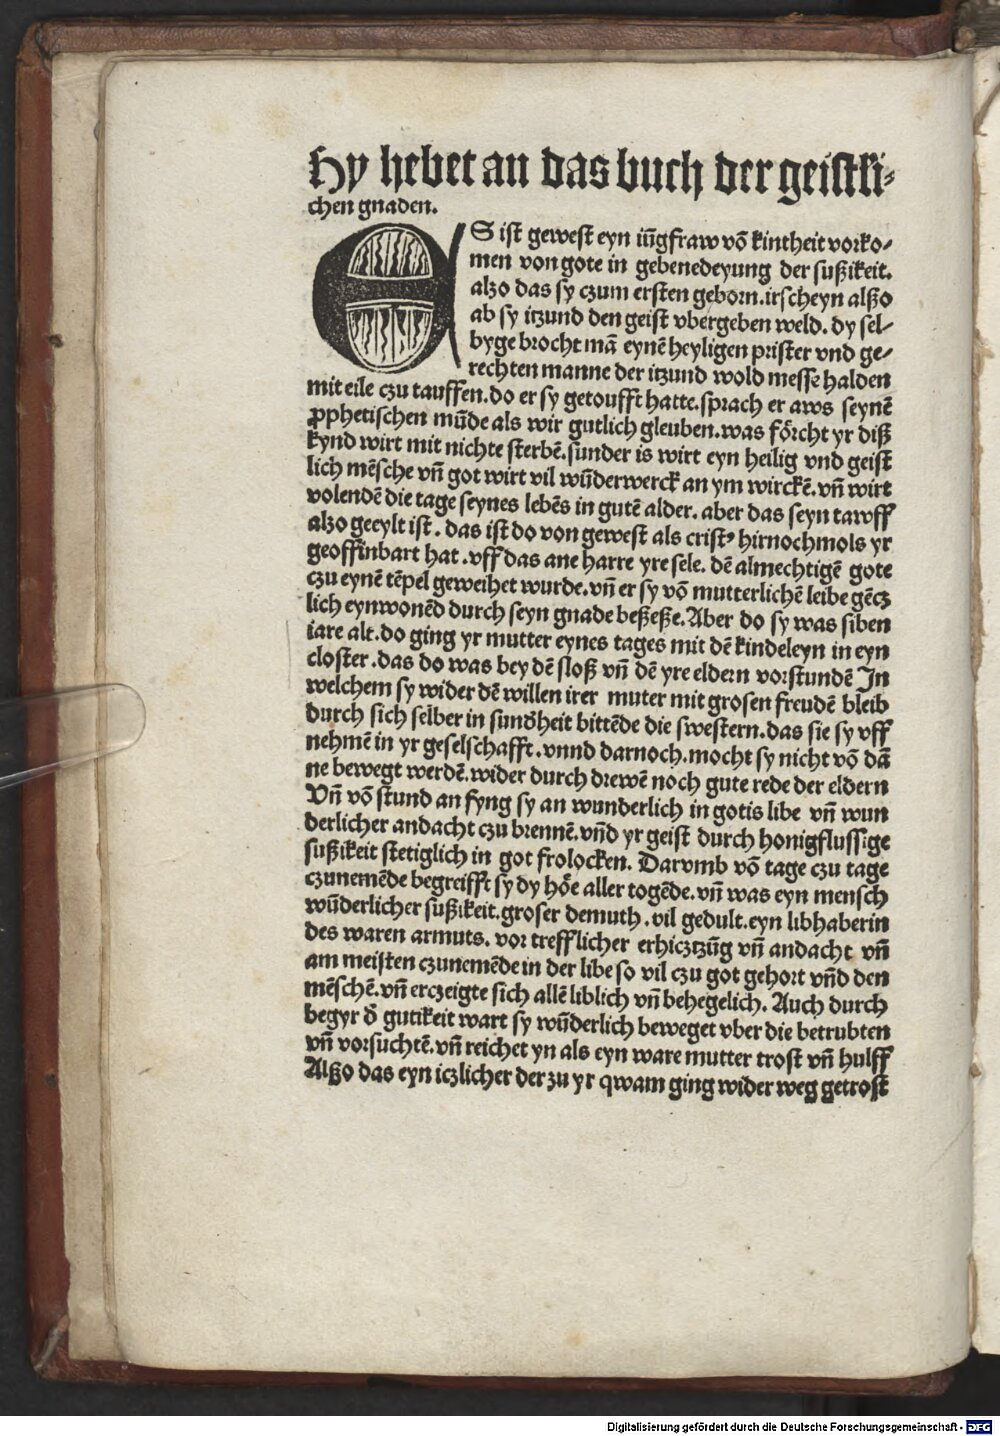 Hy hebet an das buch der geistli⸗
chen gnaden.
ES ist gewest eyn iūgfraw vō kintheit vorko⸗
men von gote in gebenedeyung der sußikeit.
alzo das sy czum ersten geborn.irscheyn alßo
ab sy itzund den geist vbergeben weld. dy sel⸗
byge brocht mā eynē heyligen prister vnd ge⸗
rechten manne der itzund wold messe halden
mit eile czu tauffen.do er sy getoufft hatte.sprach er aws seynē
ꝓphetischen mūde als wir gutlich gleuben.was förcht yr diß
kynd wirt mit nichte sterbē.sunder is wirt eyn heilig vnd geist
lich mēsche vn̄ got wirt vil wūderwerck an ym wirckē.vn̄ wirt
volendē die tage seynes lebēs in gutē alder. aber das seyn tawff
alzo geeylt ist. das ist do von gewest als cristꝰ hirnochmols yr
geoffinbart hat .vff das ane harre yre sele. dē almechtigē gote
czu eynē tēpel geweihet wurde.vn̄ er sy vō mutterlichē leibe gēcz
lich eynwonēd durch seyn gnade beßeße.Aber do sy was siben
iare alt.do ging yr mutter eynes tages mit dē kindeleyn in eyn
closter .das do was bey dē sloß vn̄ dē yre eldern vorstundē In
welchem sy wider dē willen irer muter mit grosen freudē bleib
durch sich selber in sundheit bittēde die swestern.das sie sy vff
nehmē in yr geselschafft .vnnd darnoch.mocht sy nicht vō dā
ne bewegt werdē.wider durch drewē noch gute rede der eldern
Vn̄ vō stund an fyng sy an wunderlich in gotis libe vn̄ wun
derlicher andacht czu brennē.vn̄d yr geist durch honigflussige
sußikeit stetiglich in got frolocken. Darvmb vō tage czu tage
czunemēde begreifft sy dy höe aller togēde.vn̄ was eyn mensch
wūderlicher sußikeit.groser demuth .vil gedult.eyn libhaberin
des waren armuts. vor trefflicher erhicztzūg vn̄ andacht vn̄
am meisten czunemēde in der libe so vil czu got gehort vn̄d den
mēschē.vn̄ erczeigte sich allē liblich vn̄ behegelich. Auch durch
begyr đ gutikeit wart sy wūderlich beweget vber die betrubten
vn̄ vorsuchtē.vn̄ reichet yn als eyn ware mutter trost vn̄ hulff
Alßo das eyn iczlicher der zu yr qwam ging wider weg getrost
Digitalisierung gefördert durch die Deutsche Forschungsgemeinschaft - DFG